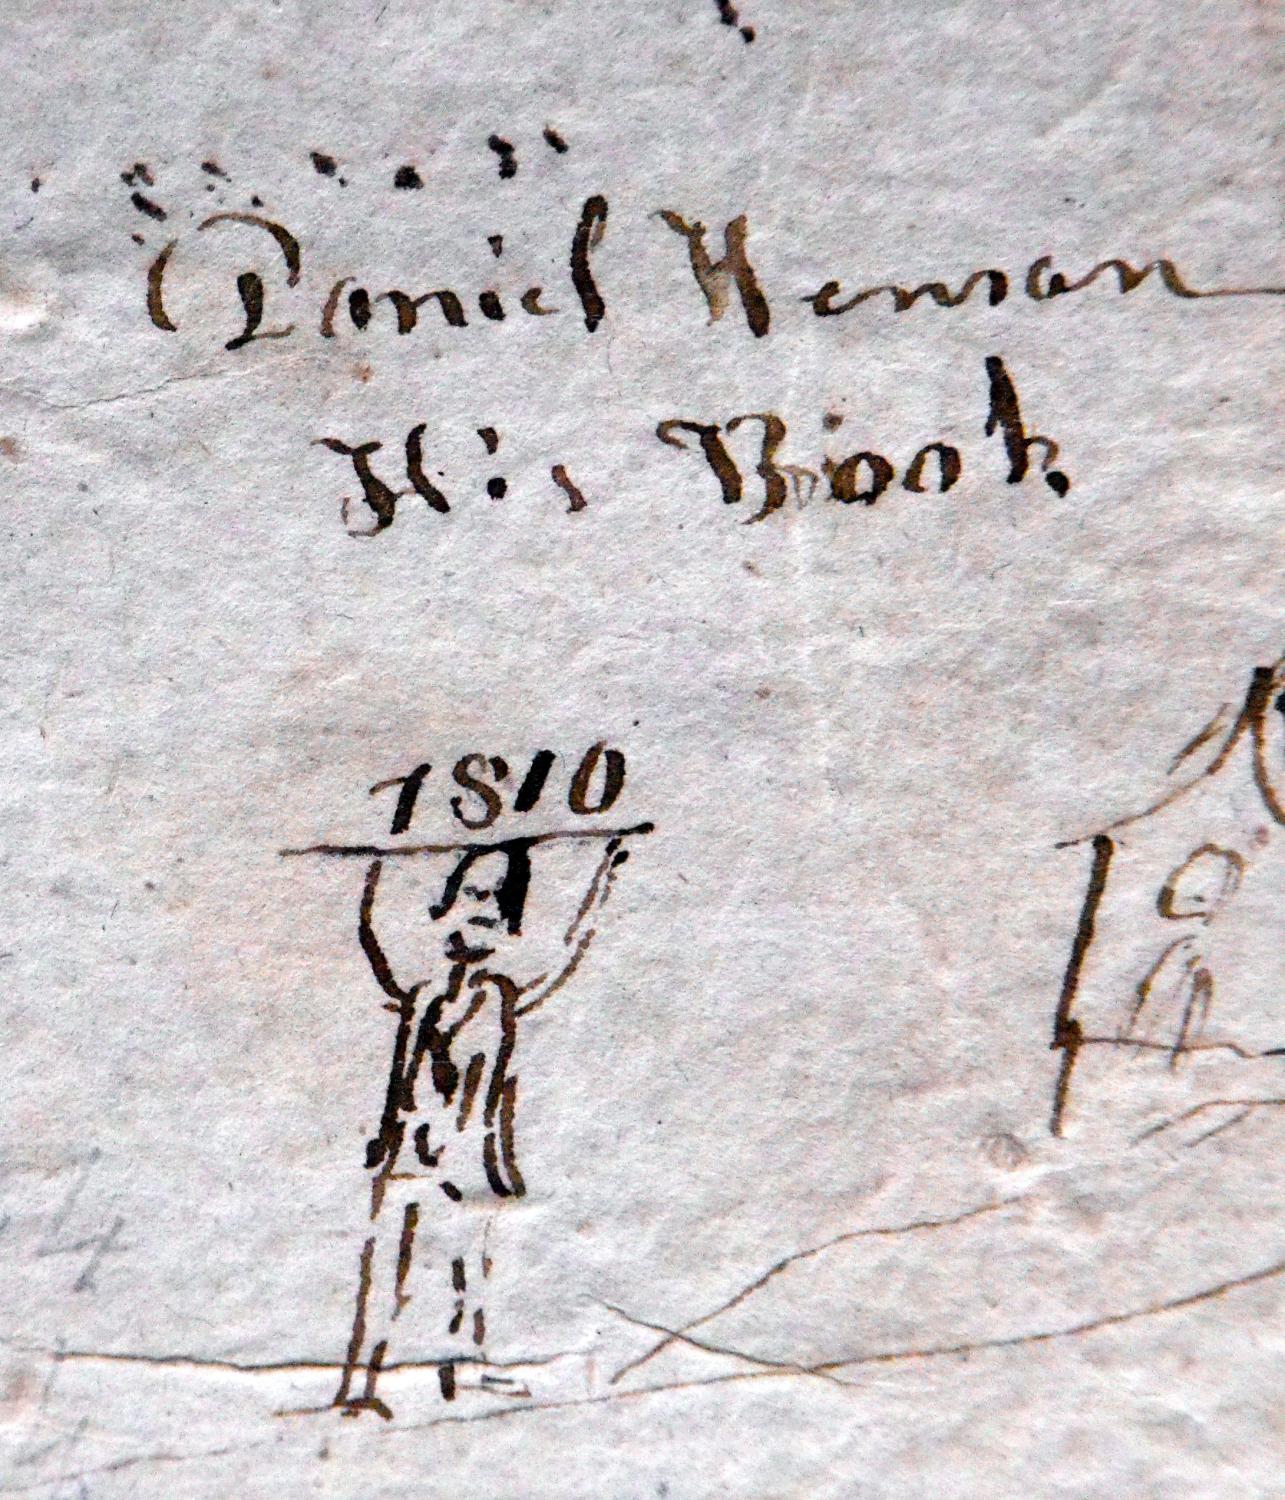 Daniel
His Book
1810